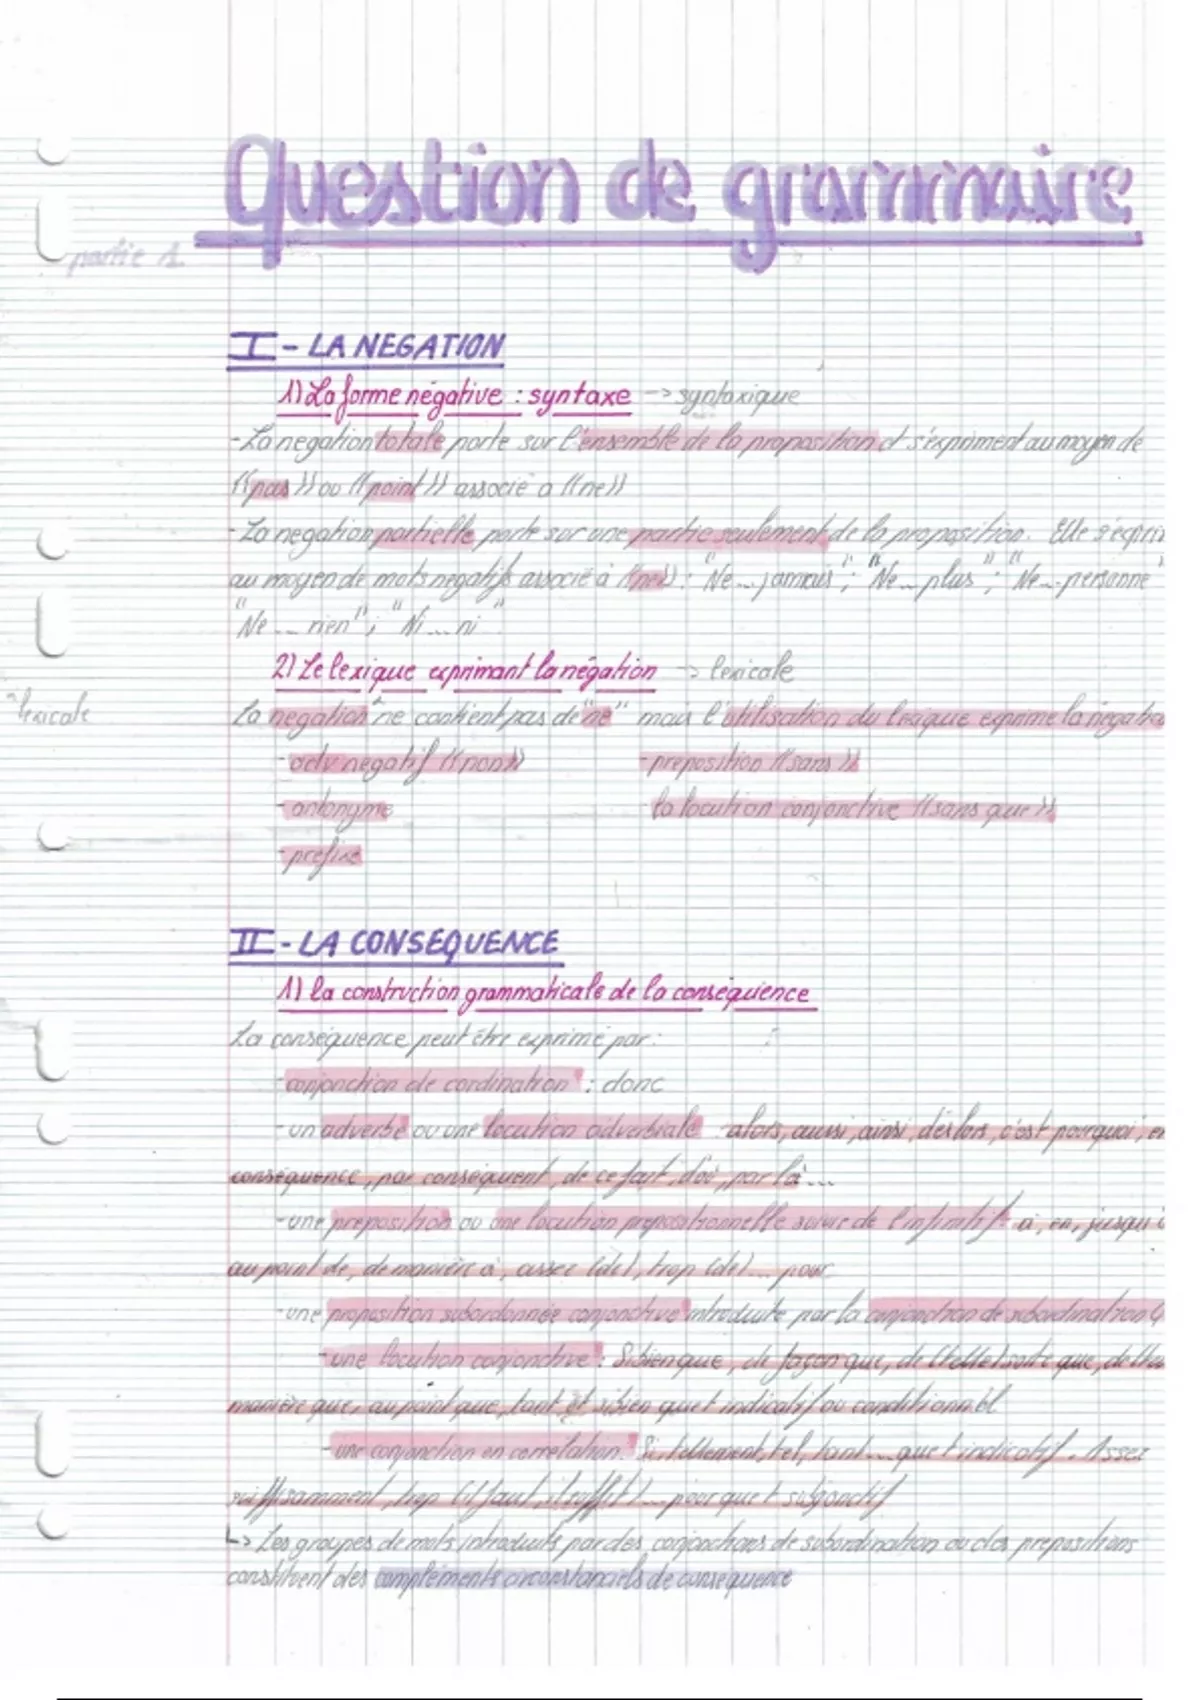 Question de grammaire
partie 1.
I - LA NEGATION
1) La forme négative : syntaxe -> syntaxique
- La negation totale porte sur l'ensemble de la proposition et s'expriment au moyen de
«pas» ou «point» associé a «ne»
- La negation partielle porte sur une partie seulement de la proposition. Elle s'exprim
au moyen de mots negatifs associé à «ne» : "Ne... jamais"; "Ne... plus"; "Ne... personne"
"Ne ... rien"; "Ni ... ni"
2) Le lexique exprimant la négation -> lexicale
lexicale
La negation ^ ne contient pas de "ne" mais l'utilisation du lexique exprime la negation
- adv negatif «non» - preposition «sans»
- antonyme - la locution conjonctive «sans que»
- prefixe
II - LA CONSEQUENCE
1) la construction grammaticale de la conséquence
La conséquence peut être exprimé par :
- conjonction de cordination : donc
- un adverbe ou une locution adverbiale : alors, aussi, ainsi, dès lors, c'est pourquoi, en
conséquence, par conséquent, de ce fait, d'où, par là ...
- une preposition ou une locution prepositionnelle suivie de l'infinitif : à, en, jusqu'à
au point de, de manière à, assez (de), trop (de) ... pour
- une proposition subordonnée conjonctive introduite par la conjonction de subordination
- une locution conjonctive : Si bien que, de façon que, de (telle) sorte que, de (telle
manière que, au point que, tant et si bien que + indicatif ou conditionnel
- une conjonction en correlation : Si, tellement, tel, tant ... que + indicatif. Assez
suffisamment, trop (il faut, il suffit) ... pour que + subjonctif
↳ Les groupes de mots introduits par des conjonctions de subordination ou des prepositions
constituent des compléments circonstanciels de consequence